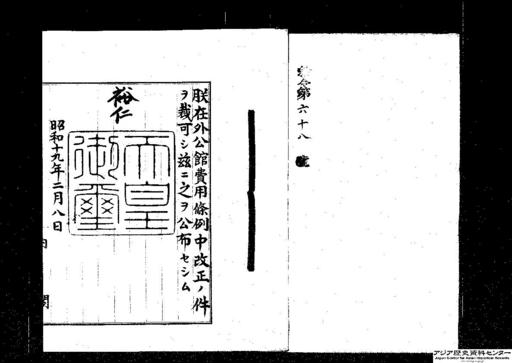 勅令第六十八號
朕在外公館費用條例中改正ノ件
ヲ裁可シ玆ニ之ヲ公布セシム
裕仁
天皇
御璽
昭和十九年二月八日
内
閣
アジア歴史資料センター
Japan Center for Asian Historical Records